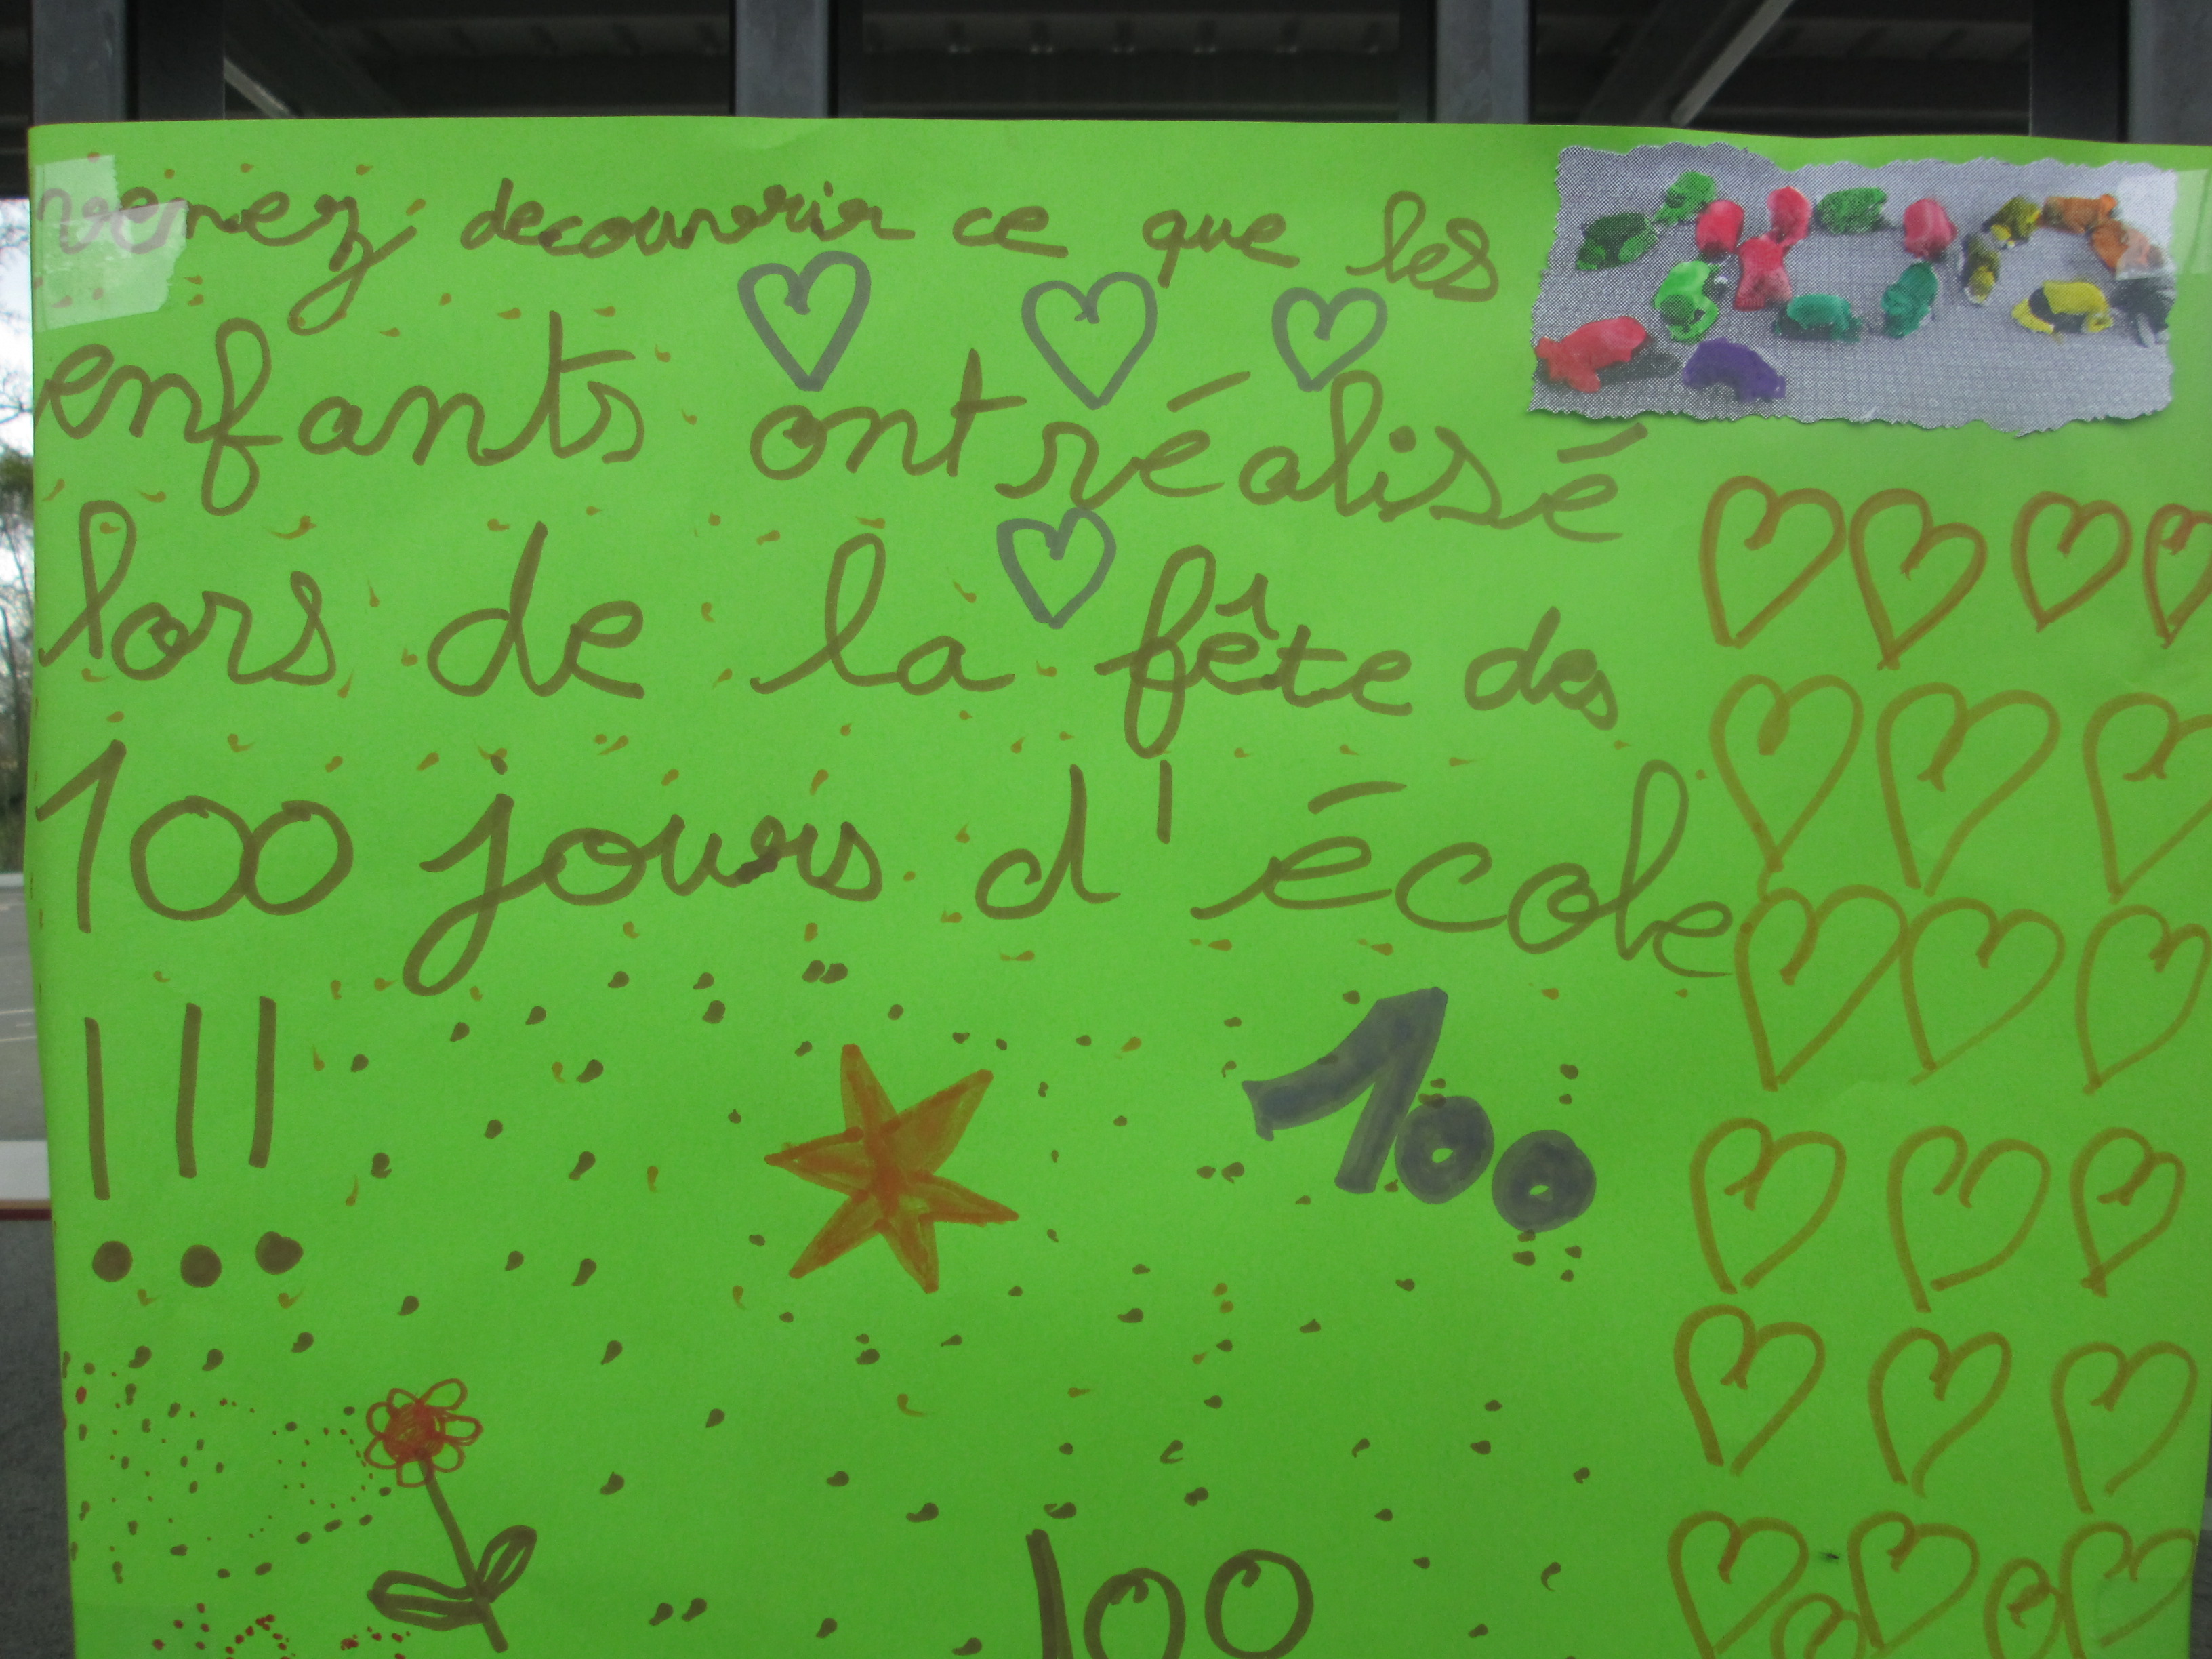 venez decouvrir ce que les
enfants ont réalisé
lors de la fête des
100 jours d'école
!!!
100
100